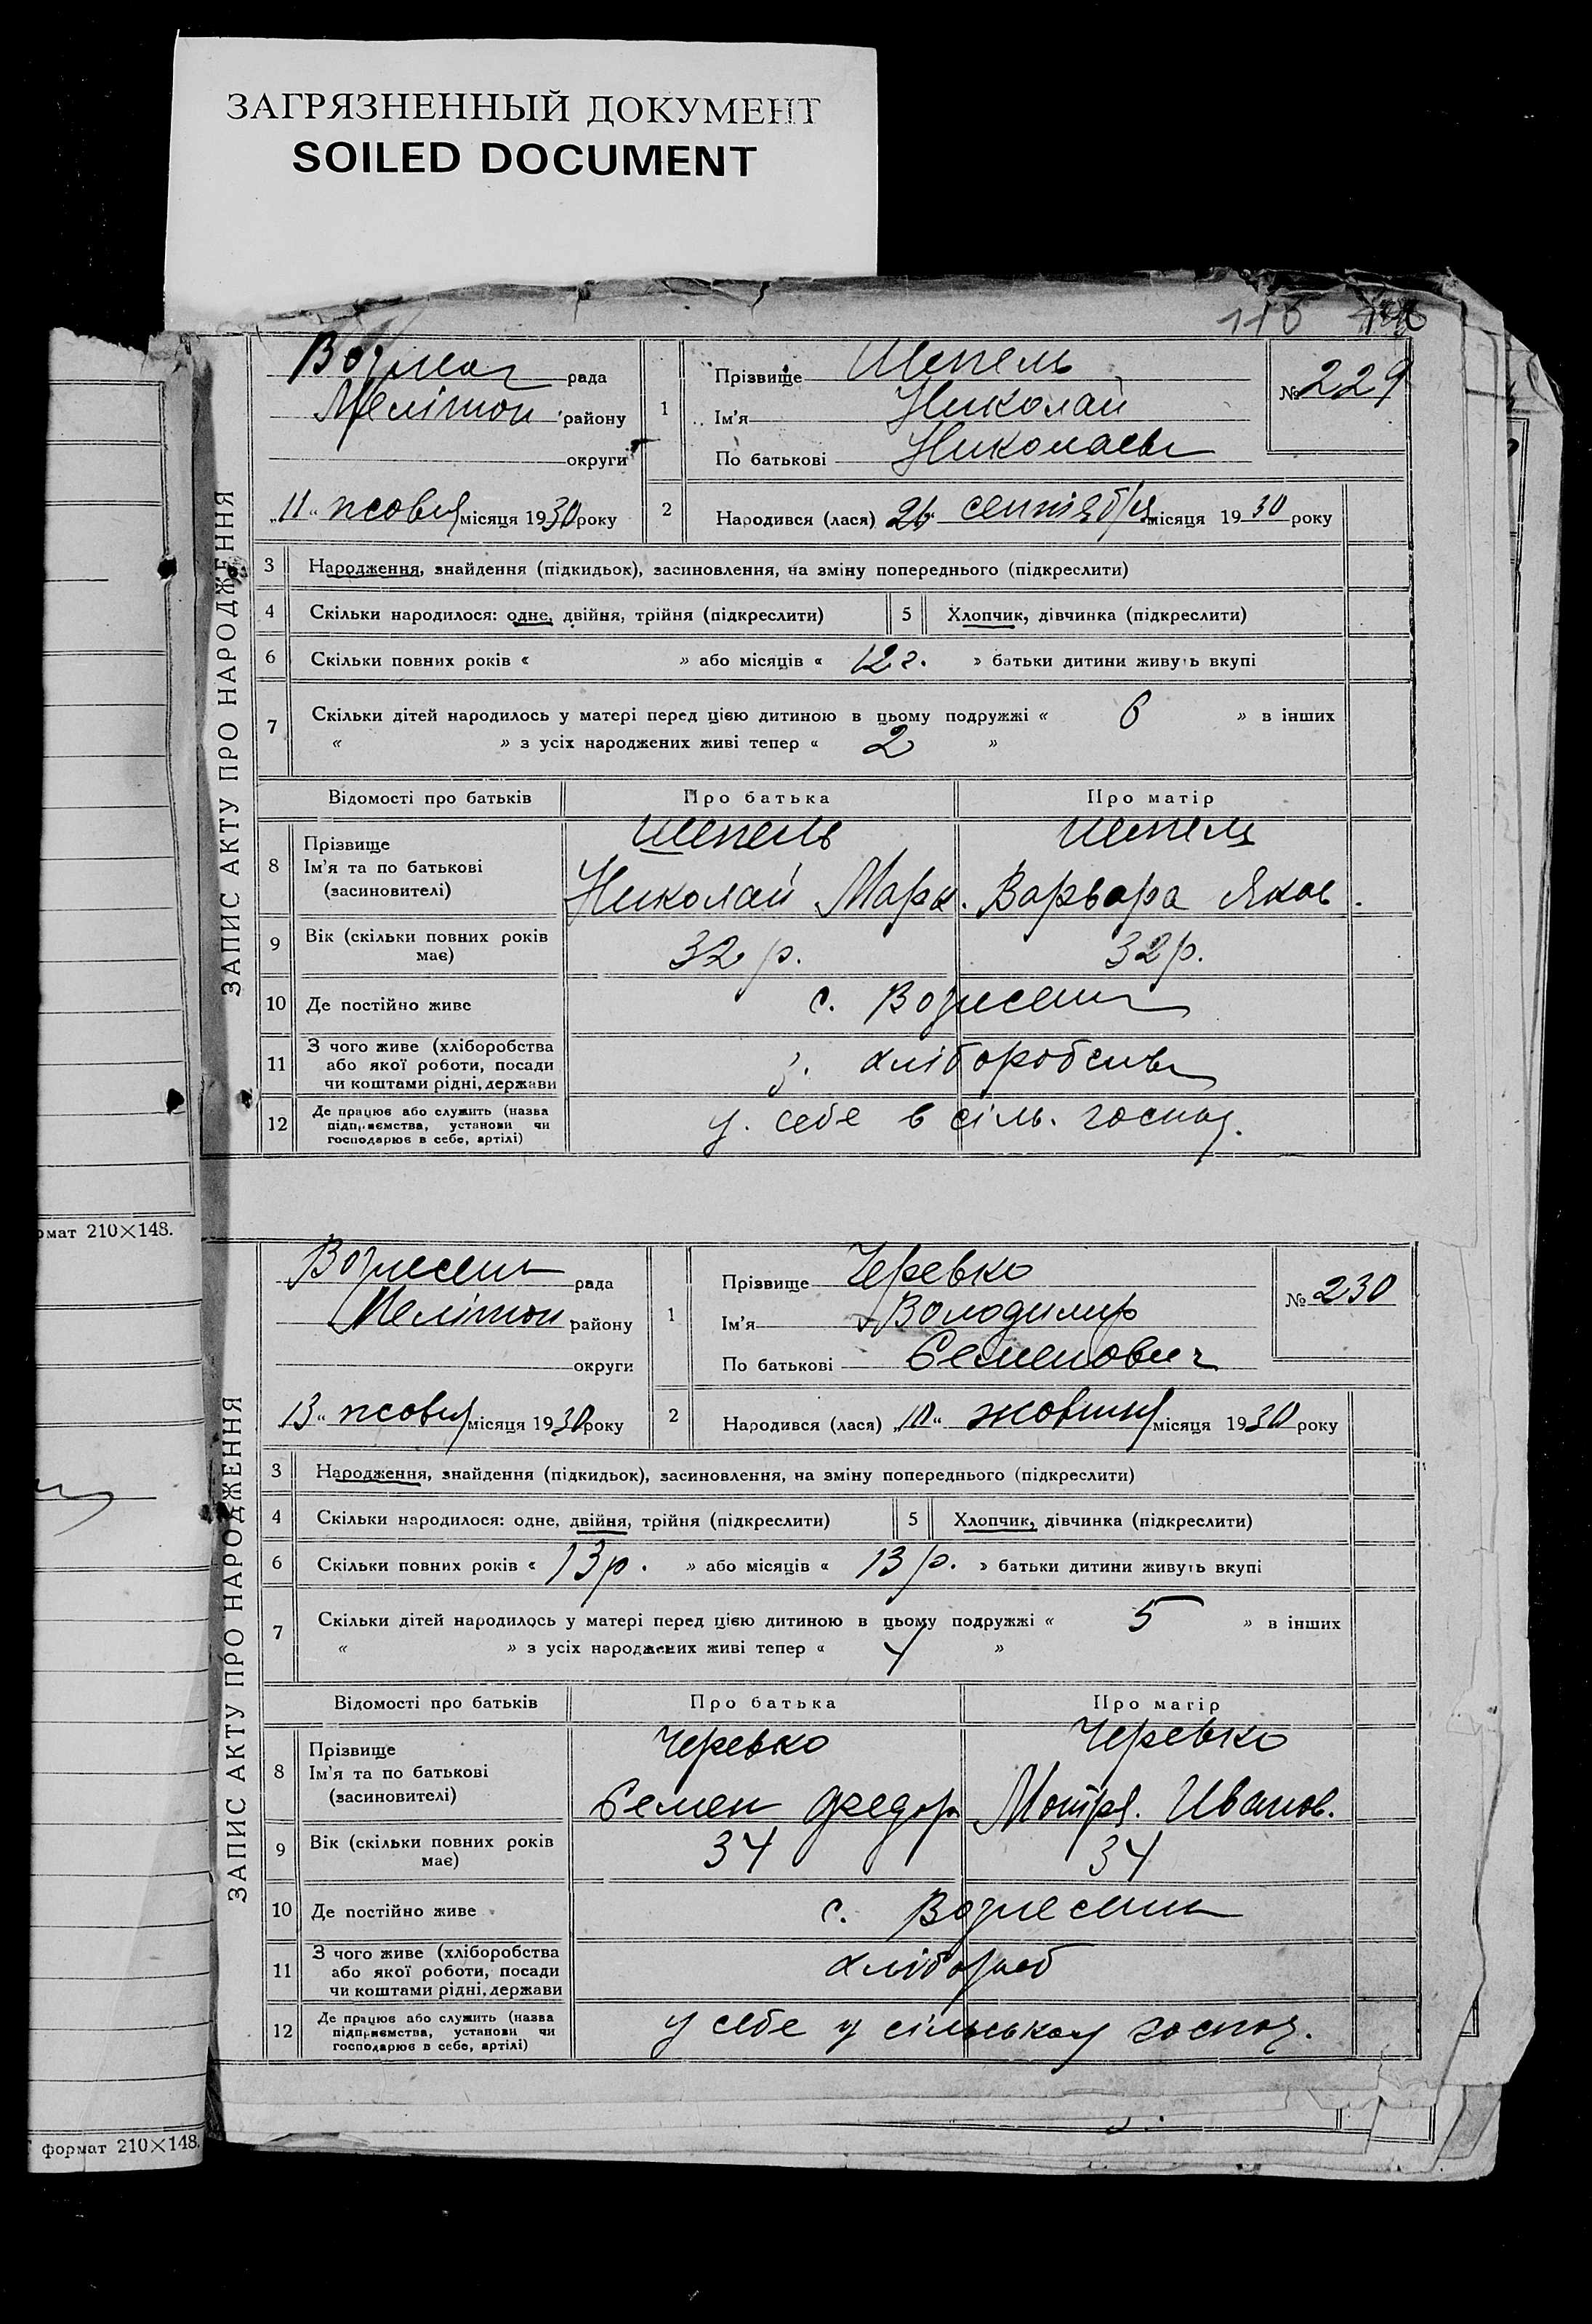 ЗАГРЯЗНЕННЫЙ ДОКУМЕНТ
SOILED DOCUMENT
116
ЗАПИС АКТУ ПРО НАРОДЖЕННЯ
рада
Мелітоп району
округи
„11“ жовтня місяця 1930 року
1
Прізвище Шепель
Ім'я Николай
По батькові Николаев
№ 229
2
Народився (лася) 26 сентября місяця 1930 року
3 Народження, знайдення (підкидьок), засиновлення, на зміну попереднього (підкреслити)
4 Скільки народилося: одне, двійня, трійня (підкреслити) 5 Хлопчик, дівчинка (підкреслити)
6 Скільки повних років « » або місяців « 12 г. » батьки дитини живуть вкупі
7 Скільки дітей народилось у матері перед цією дитиною в цьому подружжі « 6 » в інших
« » з усіх народжених живі тепер « 2 »
Відомості про батьків Про батька Про матір
8 Прізвище Шепель Шепель
Ім'я та по батькові
(засиновителі) Николай Марк. Варвара Яков.
9 Вік (скільки повних років
має) 32 р. 32 р.
10 Де постійно живе с. Вознесен
11 З чого життя (хліборобства
або якої роботи, посади
чи коштами рідні, держави
з. хліборобств
12 Де працює або служить (назва
підприємства, установи чи
господарює в себе, артілі)
у себе в сіль. господ.
рмат 210×148.
ЗАПИС АКТУ ПРО НАРОДЖЕННЯ
Вознесен рада
Мелітоп району
округи
13“ жовтня місяця 1930 року
1
Прізвище Черевко
Ім'я Володимир
По батькові Семенович
№ 230
2
Народився (лася) „10“ жовтня місяця 1930 року
3 Народження, знайдення (підкидьок), засиновлення, на зміну попереднього (підкреслити)
4 Скільки народилося: одне, двійня, трійня (підкреслити) 5 Хлопчик, дівчинка (підкреслити)
6 Скільки повних років « 13 р. » або місяців « 13 р. » батьки дитини живуть вкупі
7 Скільки дітей народилось у матері перед цією дитиною в цьому подружжі « 5 » в інших
« » з усіх народжених живі тепер « 4 »
Відомості про батьків Про батька Про матір
8 Прізвище Черевко Черевко
Ім'я та по батькові
(засиновителі) Семен Федор Мотря. Иванов.
9 Вік (скільки повних років
має) 34 34
10 Де постійно живе с. Вознесен
11 З чого живе (хліборобства
або якої роботи, посади
чи коштами рідні, держави
хлібороб
12 Де працює або служить (назва
підприємства, установи чи
господарює в себе, артілі)
у себе у сільському господ.
формат 210×148.